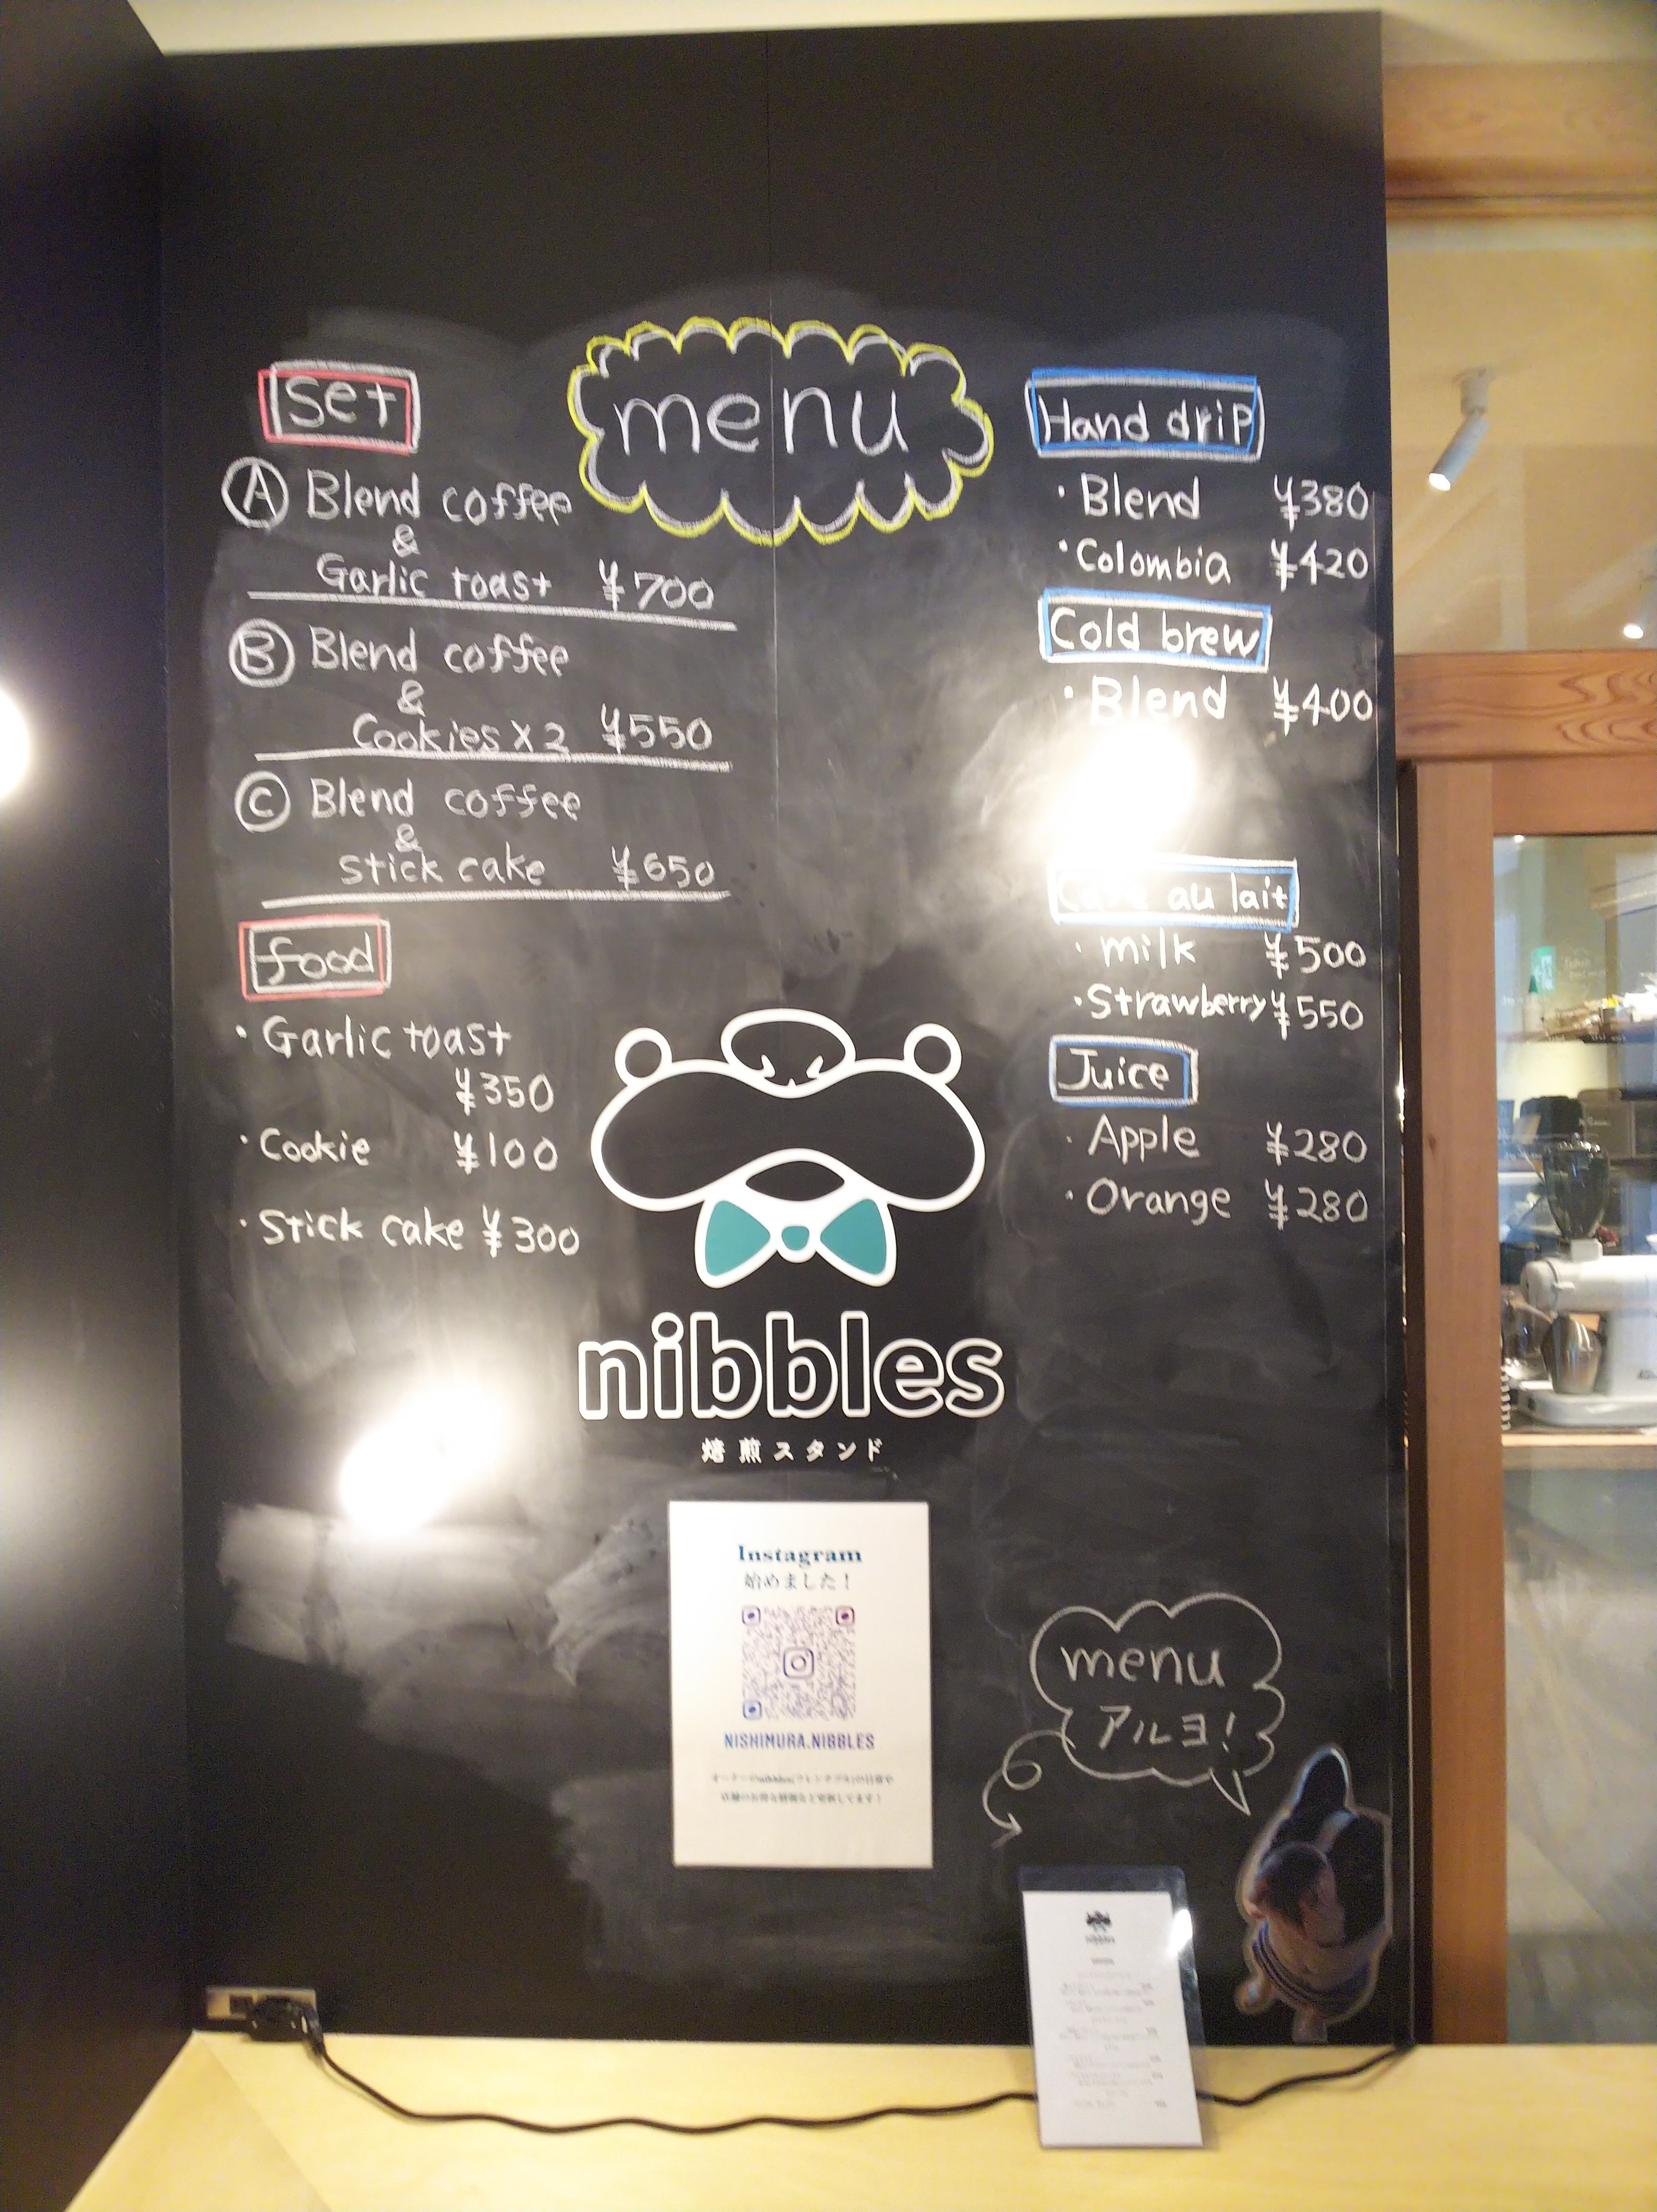 menu
set
Ⓐ Blend coffee
&
Garlic toast ¥700
Ⓑ Blend coffee
&
Cookies x 2 ¥550
Ⓒ Blend coffee
&
stick cake ¥650
food
・Garlic toast
¥350
・Cookie ¥100
・Stick cake ¥300
Hand drip
・Blend ¥380
・Colombia ¥420
Cold brew
・Blend ¥400
Cafe au lait
・milk ¥500
・Strawberry ¥550
Juice
・Apple ¥280
・Orange ¥280
nibbles
焙煎スタンド
Instagram
始めました！
NISHIMURA.NIBBLES
menu
アルヨ！
nibbles